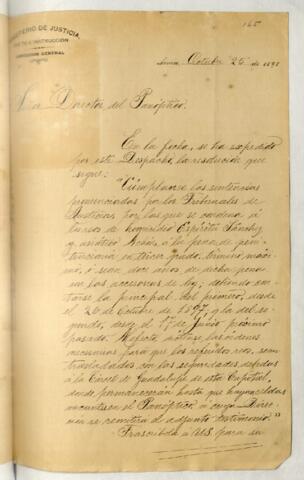 165
MINISTERIO DE JUSTICIA,
CULTO É INSTRUCCION
DIRECCION GENERAL
Lima, Octubre 26 de 189
Señor Director del Panóptico.
En la fecha, se ha expedido
por este Despacho, la resolución que
sigue:
"Cúmplanse las sentencias
pronunciadas por los Tribunales de
Justicia, por las que se condena á
los reos de homicidio Espíritu Sánchez
y asiático á la pena de peni-
tenciaría en tercer grado, término máxi-
mo, ó sean doce años de dicha pena
con las accesorias de ley; debiendo con-
tarse la principal del primero, desde
el 20 de Octubre de 1897 y la del se-
gundo, desde el 1º de Junio próximo
pasado. Al efecto, las órdenes
necesarias para que los referidos reos, sean
trasladados con las seguridades debidas
á la Cárcel de Guadalupe de esta Capital,
donde permanecerán hasta que haya celdas
en el Panóptico, á cuyo Direc-
tor se remitirá el adjunto testimonio."
Trascríbola á US. para su